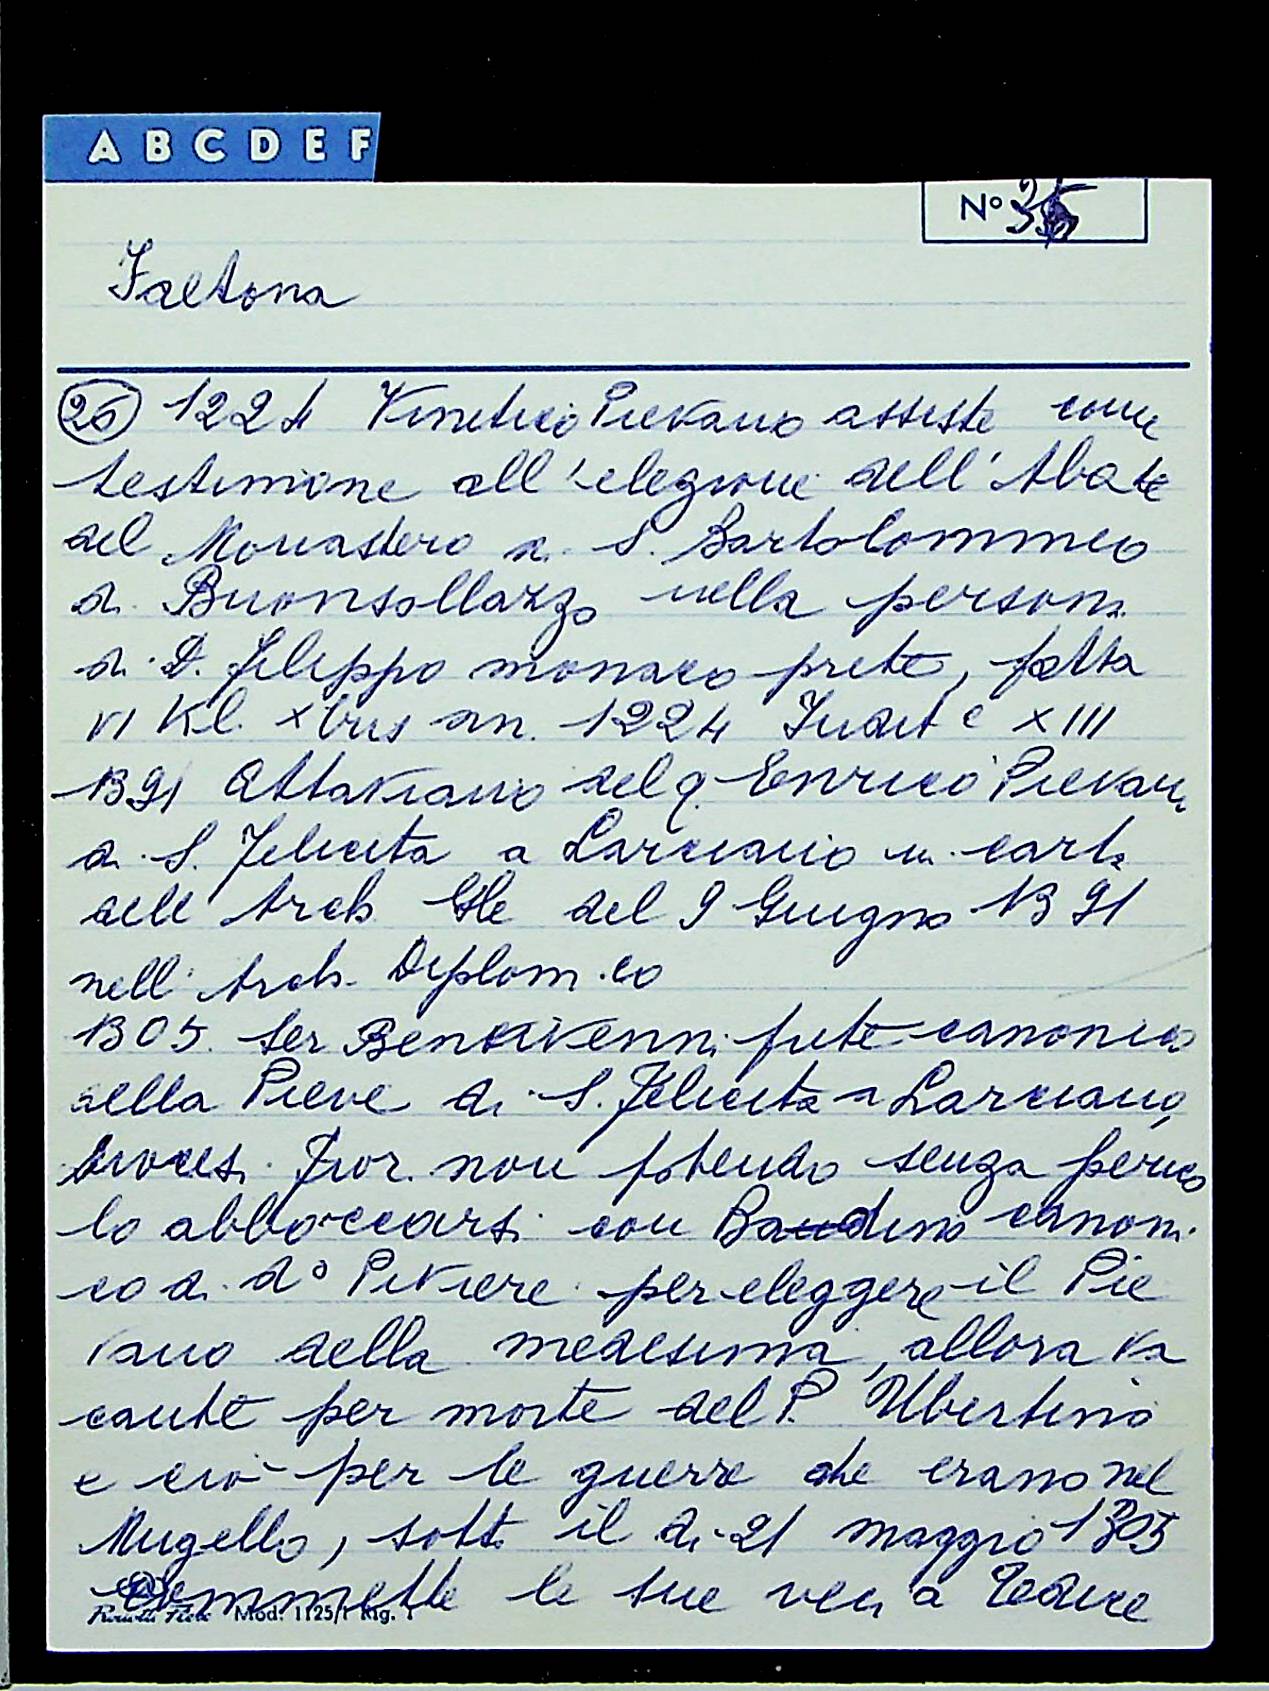 A B C D E F
N° 35
Faltona
(26) 1224 Kinetico Pievano assiste come
testimone all'elezione dell'Abate
del Monastero di S. Bartolommeo
di Buonsollazzo nella persona
di D. Filippo monaco prete, fatta
VI Kl. Xbris an. 1224 Indit e XIII
1391 Attaviano del q. Enrico Pievan
di S. Felicita a Larciano in carta
dell'Arch. Gle del 9 Giugno 1391
nell'Arch. Diplom.co
1305. Ser Benvivenni prete canonico
della Pieve di S. Felicita a Larciano,
Dioces. Fior. non potendo senza perico
lo abboccarsi con Baudino canoni
co di do Piviere per eleggere il Pie
vano della medesima, allora va
cante per morte del P. Ubertino
e ciò per le guerre che erano nel
Mugello, sotto il di 21 maggio 1305
le sue veci a
Mod. 1125/1 Rig. 1